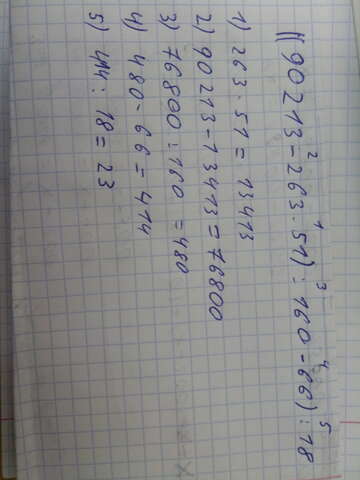 ((90 213 - 263 · 51) : 160 - 66) : 18
2 1 3 4 5
1) 263 · 51 = 13413
2) 90 213 - 13 413 = 76800
3) 76800 : 160 = 480
4) 480 - 66 = 414
5) 414 : 18 = 23